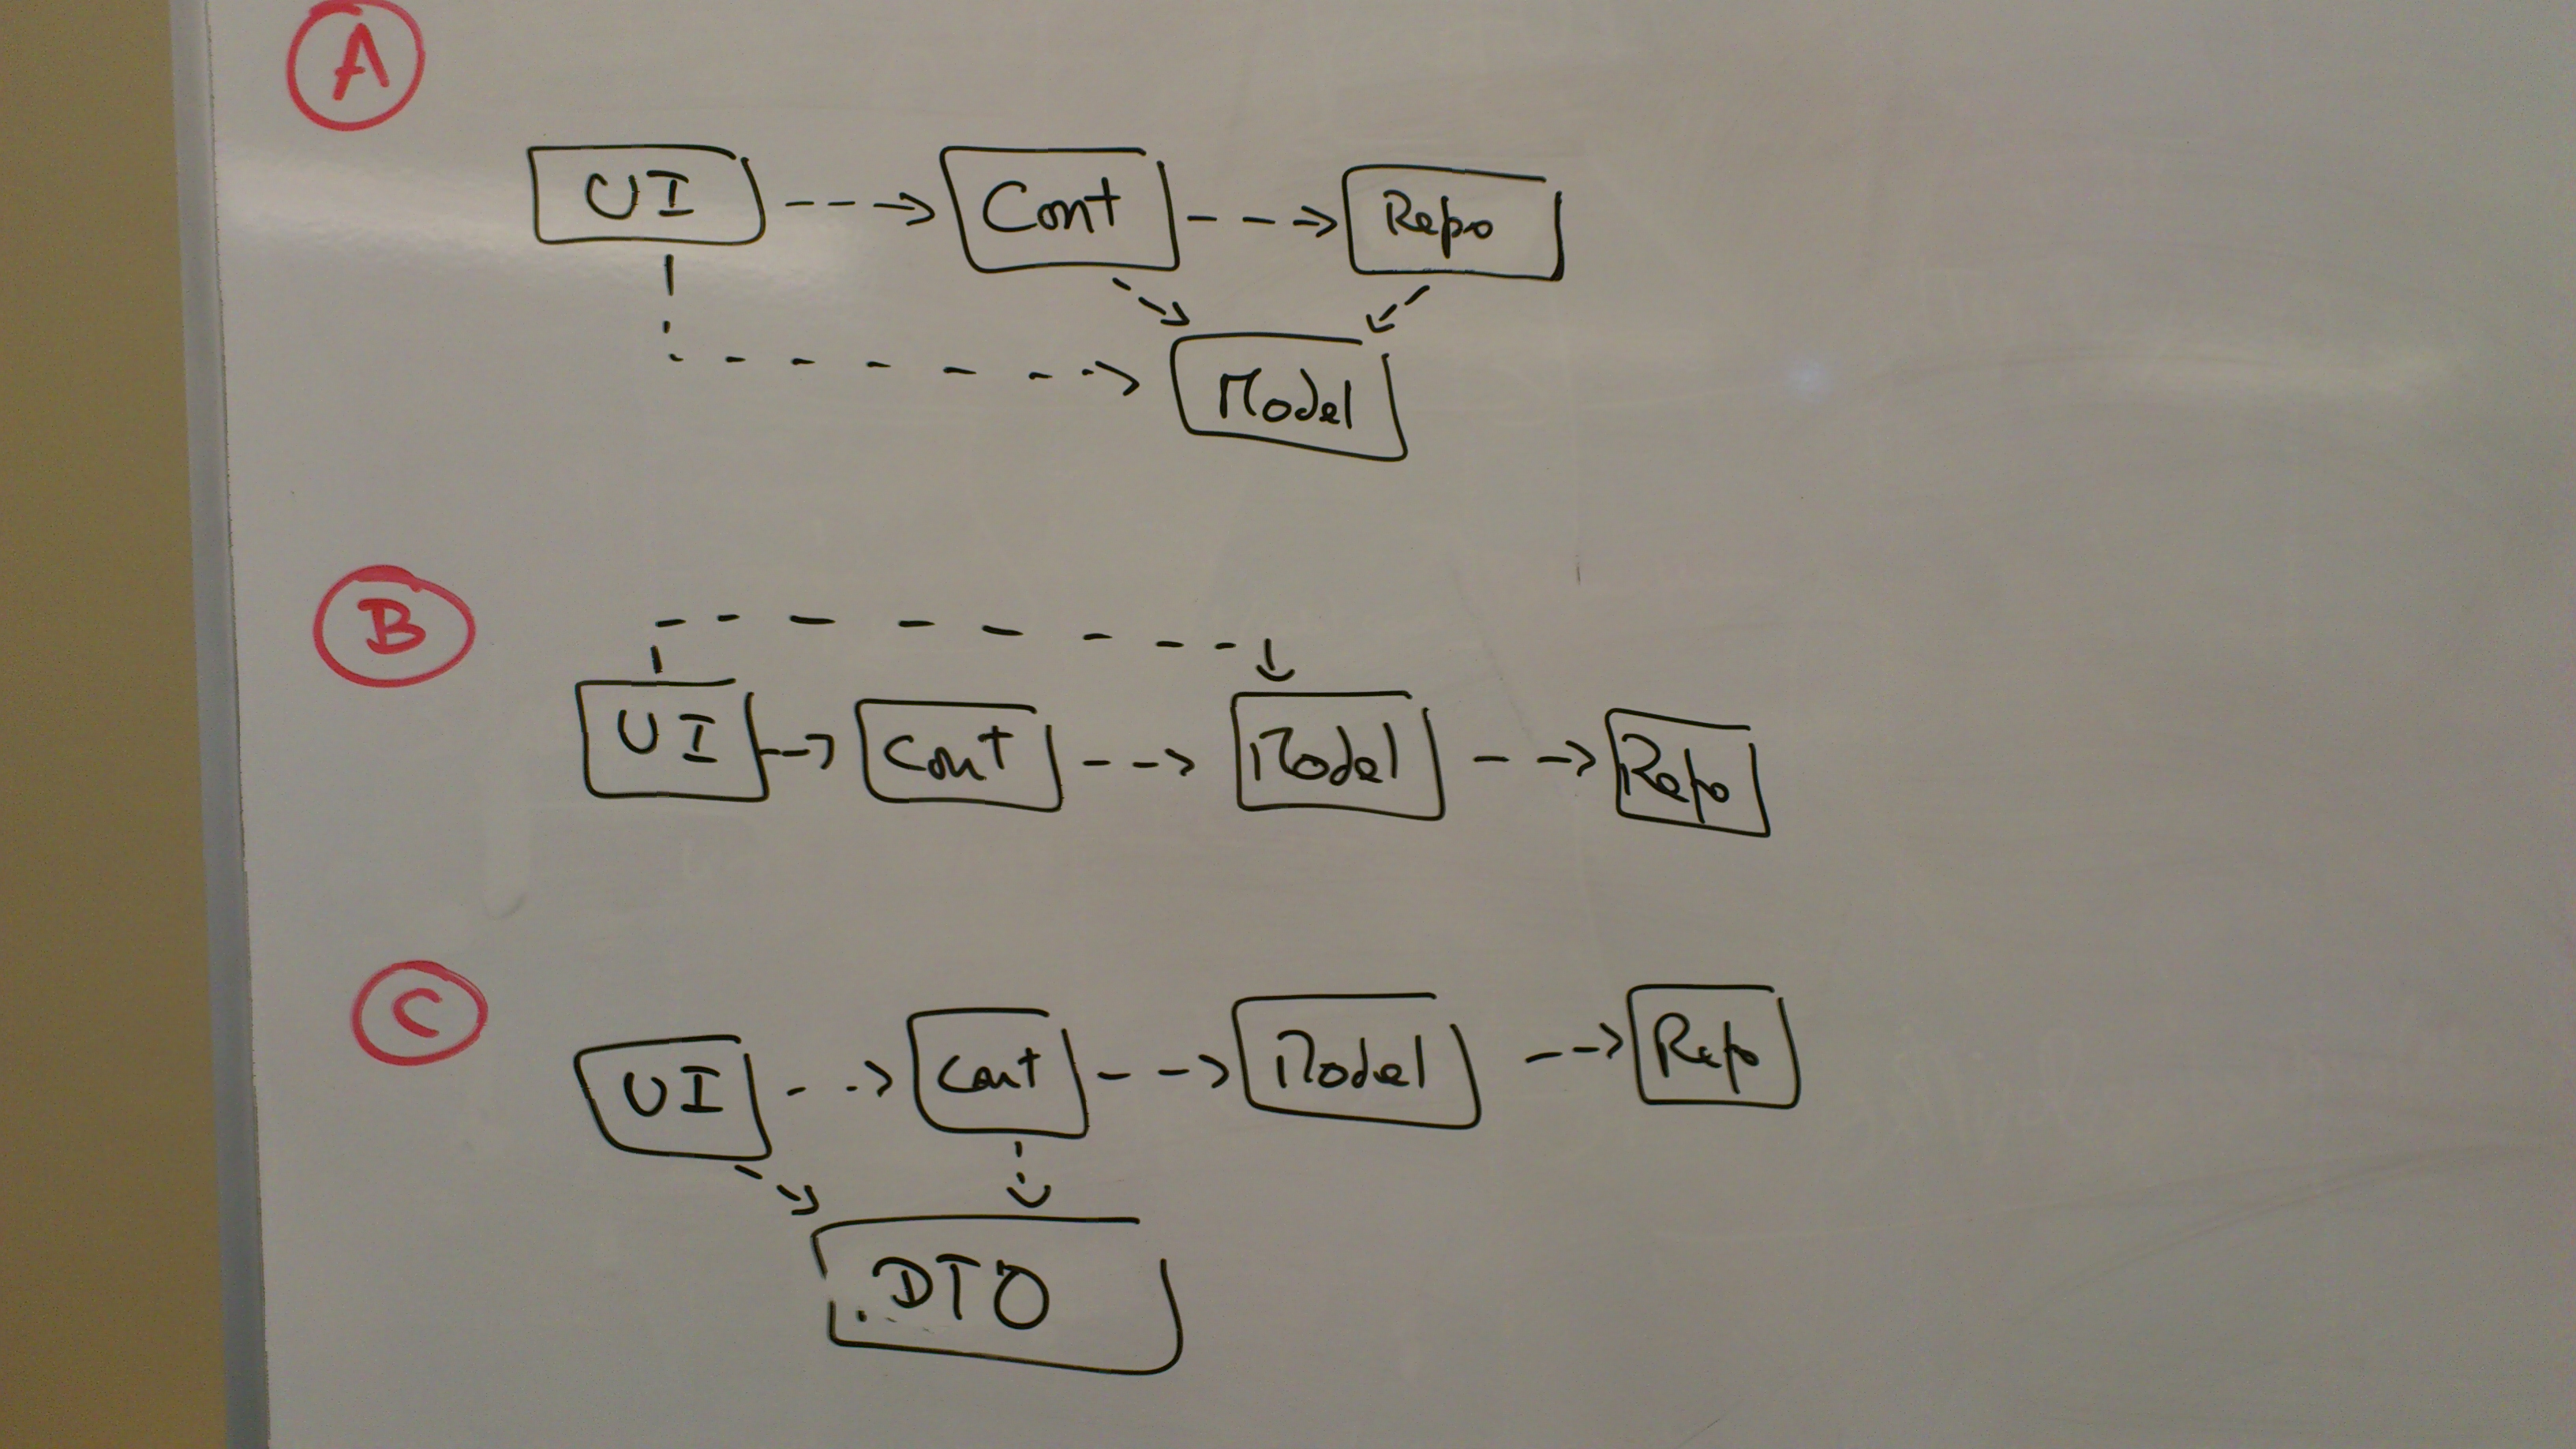 A
UI Cont Repo
Model
B
UI Cont Model Repo
C
UI Cont Model Repo
DTO